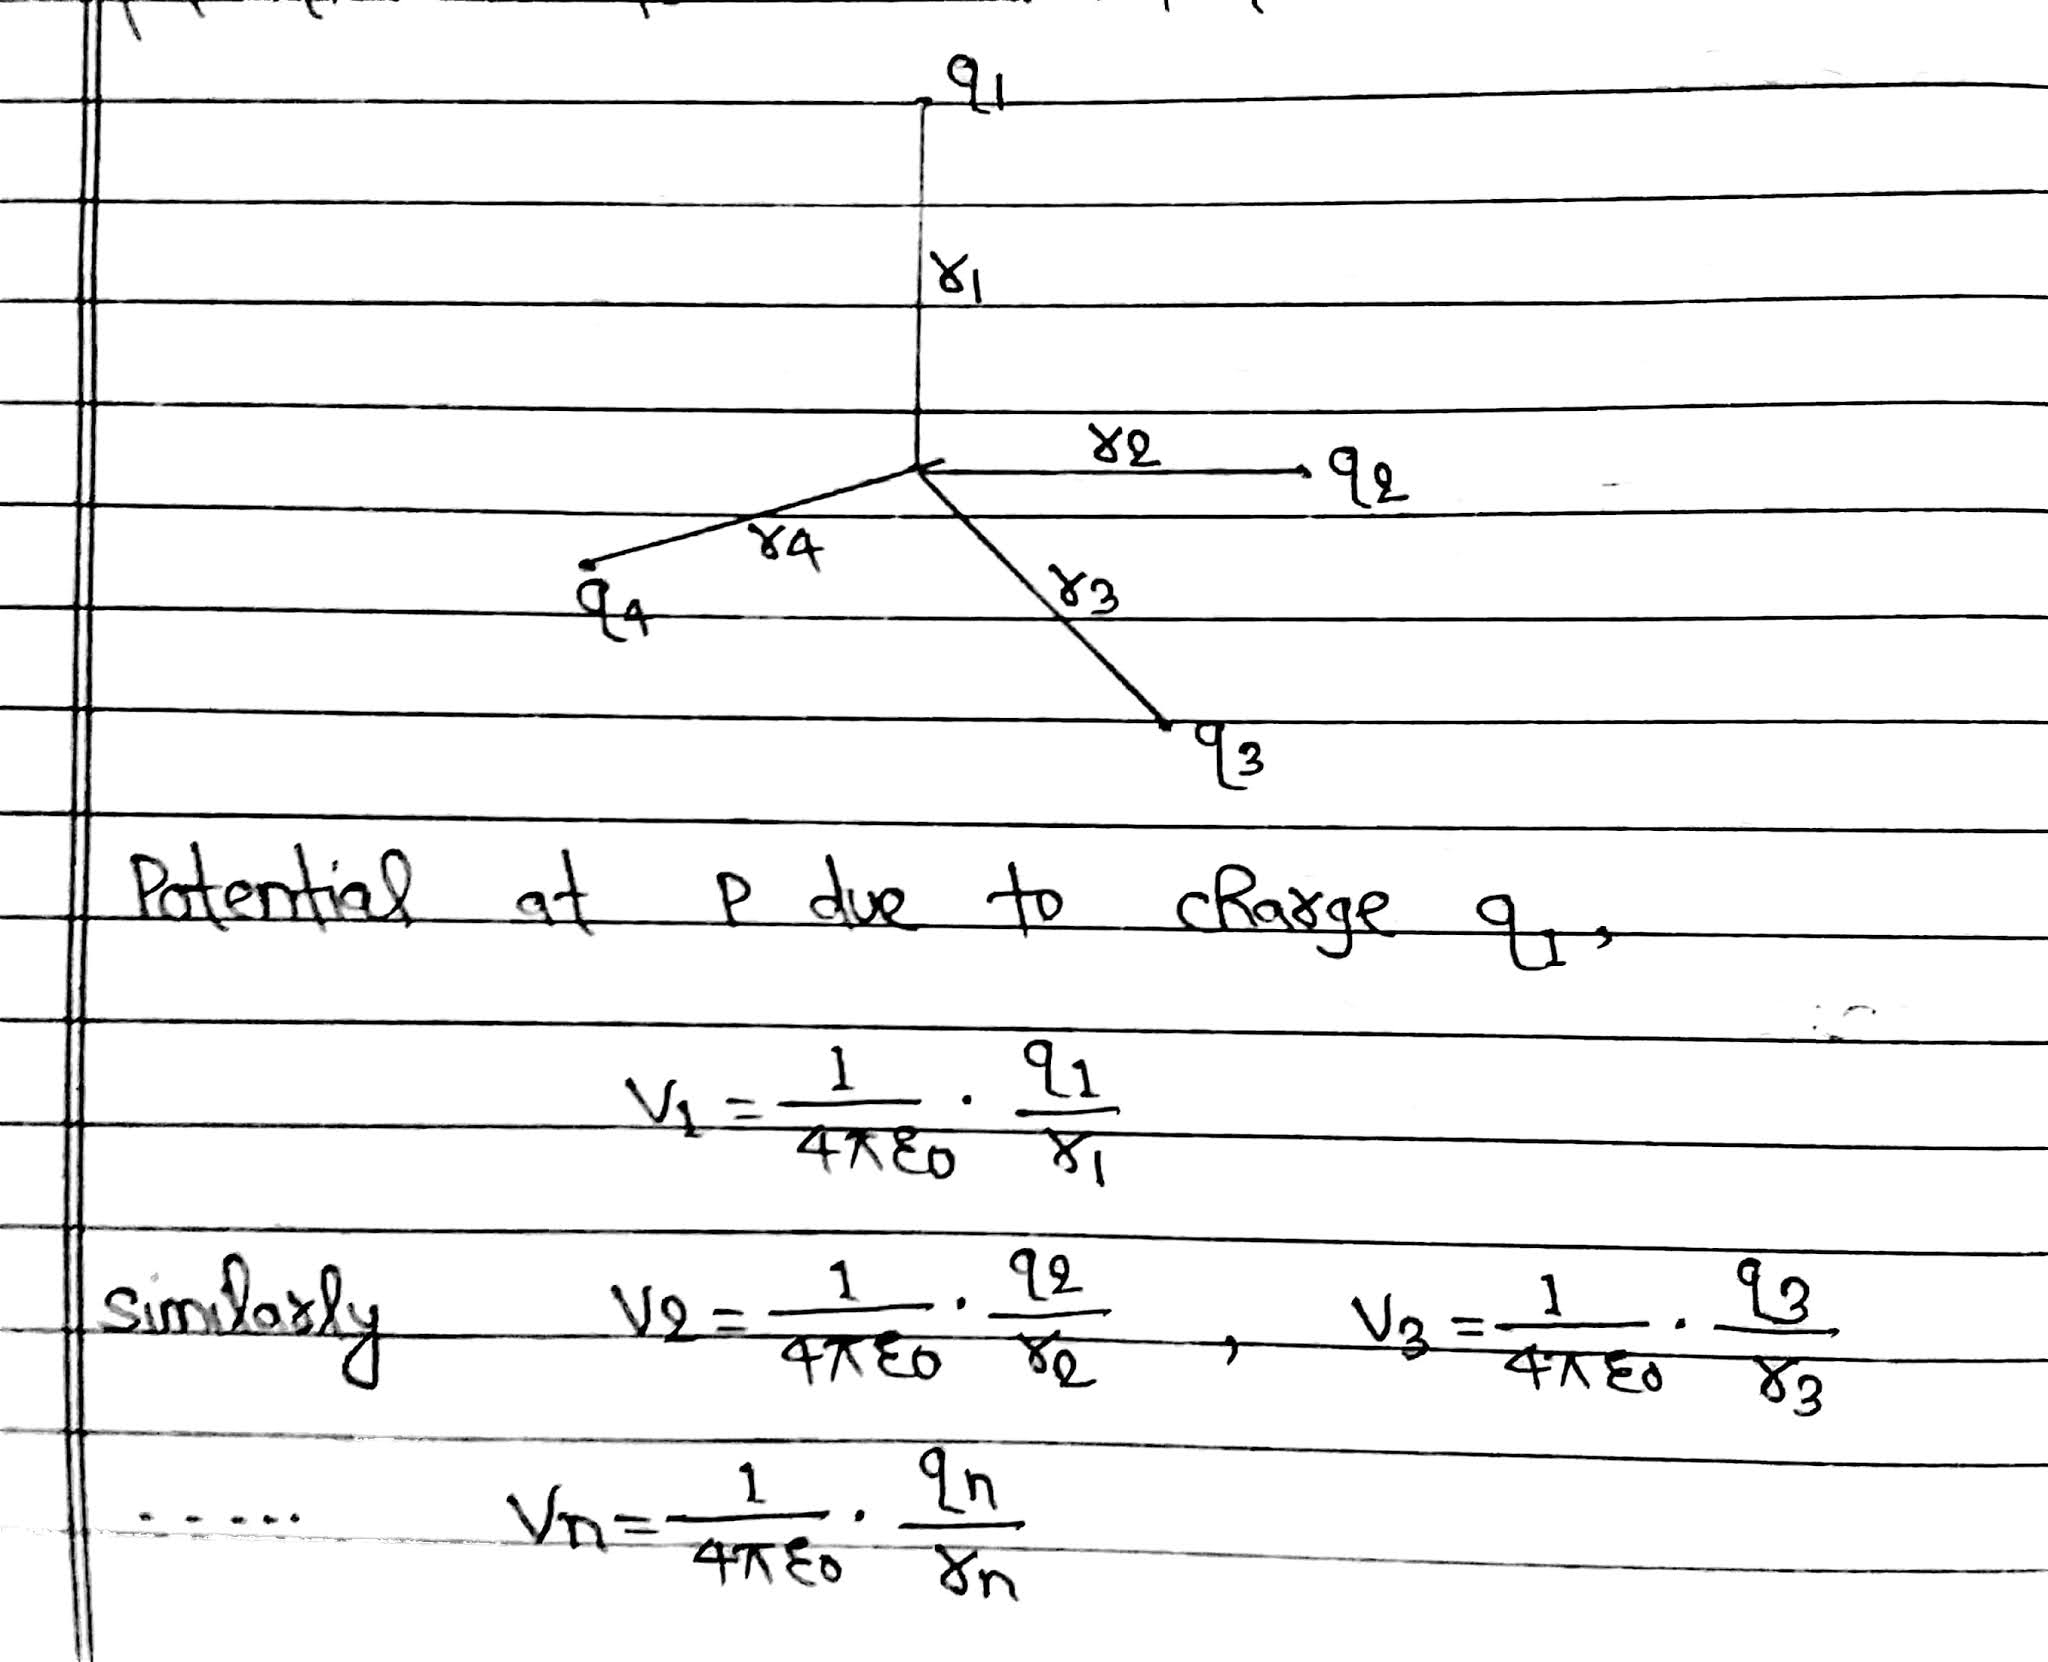 q1
r1
r2 q2
r4
r3
q4
q3
Potential at P due to charge q1,
V1 = 1/4πε0 · q1/r1
Similarly V2 = 1/4πε0 · q2/r2 , V3 = 1/4πε0 · q3/r3
...... Vn = 1/4πε0 · qn/rn